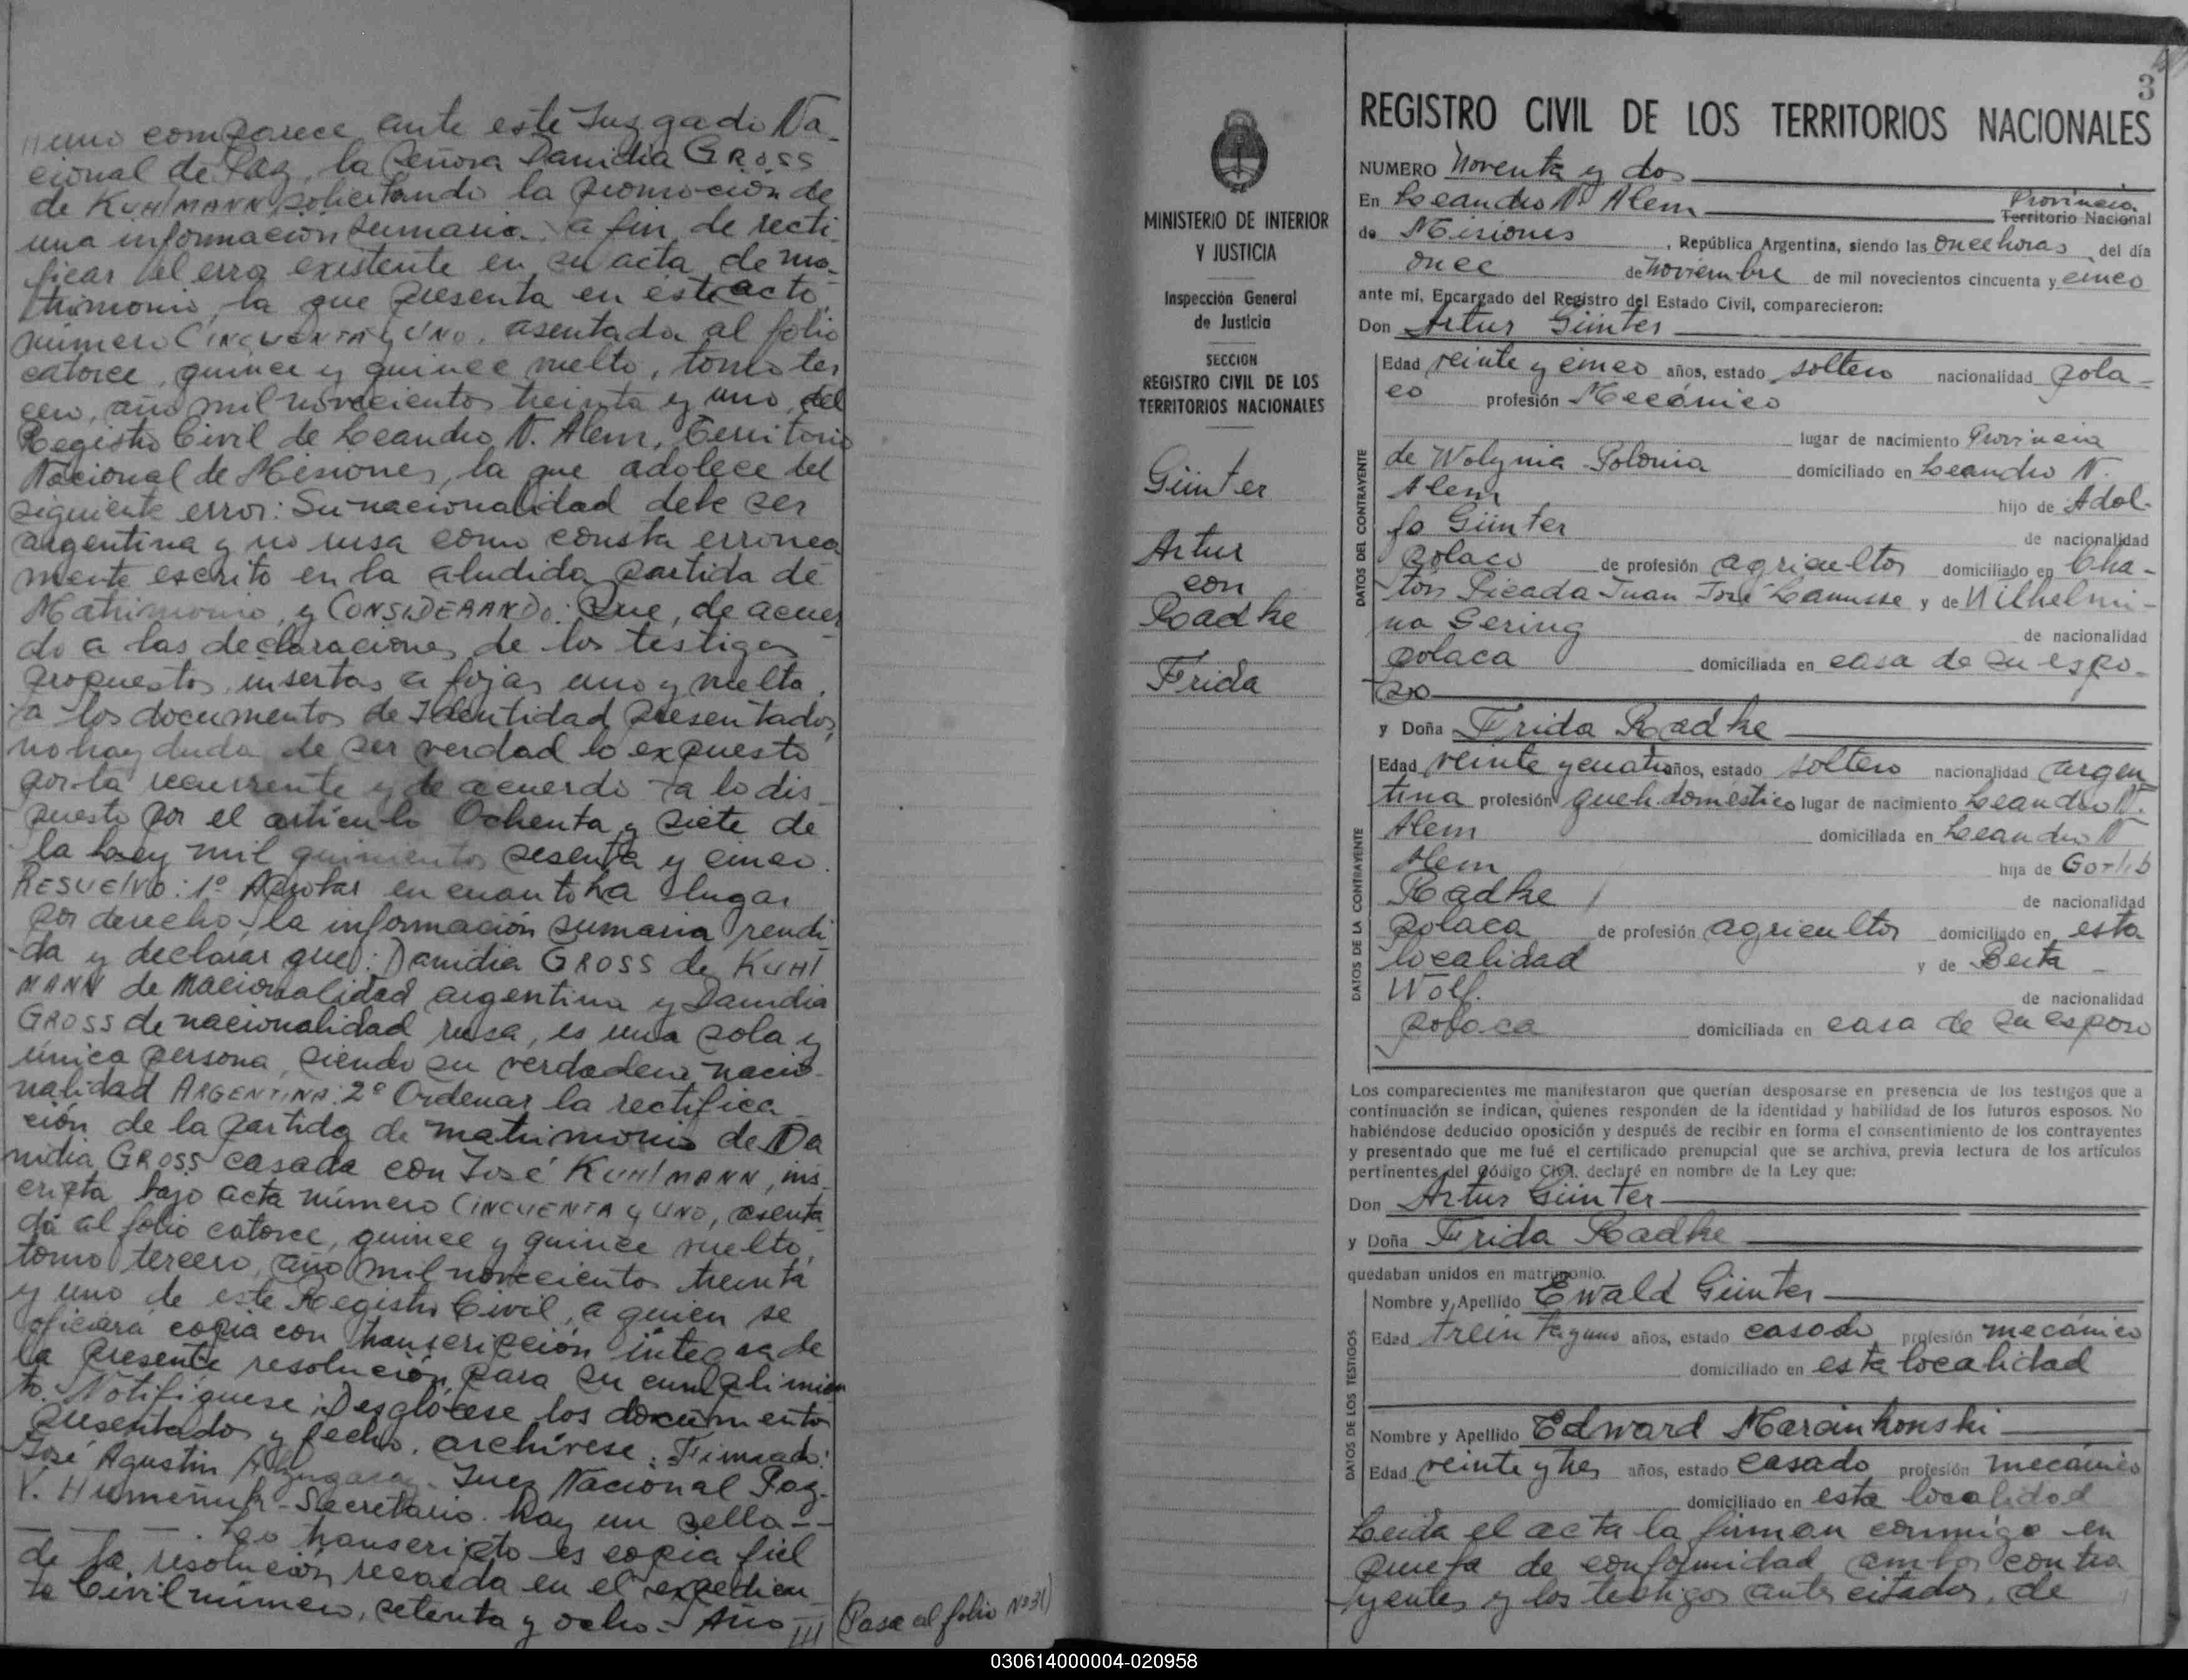 mero comparece ante este Juzgado Na-
cional de Paz, la señora Danidia GROSS
de KUHLMANN, solicitando la promoción de
una información sumaria a fin de recti-
ficar el error existente en su acta de ma-
trimonio, la que presenta en este acto
número CINCUENTA y UNO, asentada al folio
catorce, quince y quince vuelto, tomo ter
cero, año mil novecientos treinta y uno, del
Registro Civil de Leandro N. Alem, Territorio
Nacional de Misiones, la que adolece del
siguiente error: Su nacionalidad debe ser
argentina y no rusa como consta erronea
mente escrito en la aludida partida de
Matrimonio, y CONSIDERANDO: Que, de acuer
do a las declaraciones de los testigos
propuestos, insertas a fojas uno y vuelta,
a los documentos de Identidad presentados,
no hay duda de ser verdad lo expuesto
por la recurrente y de acuerdo a lo dis-
puesto por el artículo Ochenta y siete de
la Ley mil quinientos sesenta y cinco.
RESUELVO: 1º Aprobar en cuanto ha lugar
por derecho la información sumaria rendi-
da y declarar que: Danidia GROSS de KUHL
MANN de Nacionalidad argentina y Danidia
GROSS de nacionalidad rusa, es una sola y
única persona, siendo su verdadera nacio-
nalidad ARGENTINA. 2º Ordenar la rectifica-
ción de la partida de matrimonio de Da
nidia GROSS casada con José KUHLMANN, ins-
cripta bajo acta número CINCUENTA y UNO, asenta
da al folio catorce, quince y quince vuelto,
tomo tercero, año mil novecientos treinta
y uno de este Registro Civil, a quien se
oficiará copia con transcripción íntegra de
la presente resolución, para su cumplimien
to. Notifíquese, Desglócese los documentos
presentados y fecho, archívese; Firmado:
José Agustín Juez Nacional Paz.
V. Humeñuk - Secretario. Hay un sello --
— — — . Lo transcripto es copia fiel
de la resolución recaída en el expedien
te Civil número, setenta y ocho - Año ///
(Pasa al folio Nº 31)
MINISTERIO DE INTERIOR
Y JUSTICIA
Inspección General
de Justicia
SECCION
REGISTRO CIVIL DE LOS
TERRITORIOS NACIONALES
Günter
Artur
con
Radke
Frida
3
REGISTRO CIVIL DE LOS TERRITORIOS NACIONALES
NUMERO Noventa y dos
En Leandro N. Alem Provincia
Territorio Nacional
de Misiones, República Argentina, siendo las once horas del día
once de noviembre de mil novecientos cincuenta y cinco
ante mí, Encargado del Registro del Estado Civil, comparecieron:
Don Artur Günter
DATOS DEL CONTRAYENTE
Edad veinte y cinco años, estado soltero nacionalidad pola-
co profesión Mecánico
lugar de nacimiento Provincia
de Wolynia - Polonia domiciliado en Leandro N.
Alem hijo de Adol-
fo Günter de nacionalidad
polaco de profesión agricultor domiciliado en Cha-
ton Picada Juan José Lanusse y de Wilhelmi-
na Gering de nacionalidad
polaca domiciliada en casa de su espo-
so
y Doña Frida Radke
DATOS DE LA CONTRAYENTE
Edad veinte y cuatro años, estado soltero nacionalidad argen
tina profesión queh. domestico lugar de nacimiento Leandro N.
Alem domiciliada en Leandro N
Alem hija de Gotlib
Radke de nacionalidad
polaca de profesión agricultor domiciliado en esta
localidad y de Berta
Wolf. de nacionalidad
polaca domiciliada en casa de su esposo
Los comparecientes me manifestaron que querían desposarse en presencia de los testigos que a
continuación se indican, quienes responden de la identidad y habilidad de los futuros esposos. No
habiéndose deducido oposición y después de recibir en forma el consentimiento de los contrayentes
y presentado que me fué el certificado prenupcial que se archiva, previa lectura de los artículos
pertinentes del Código Civil, declaré en nombre de la Ley que:
Don Artur Günter
y Doña Frida Radke
quedaban unidos en matrimonio.
DATOS DE LOS TESTIGOS
Nombre y Apellido Ewald Günter
Edad treinta y uno años, estado casado profesión mecánico
domiciliado en esta localidad
Nombre y Apellido Edward Marcinkonski
Edad veinte y tres años, estado casado profesión mecánico
domiciliado en esta localidad
Leída el acta la firman conmigo en
prueba de conformidad ambos contra
yentes y los testigos ants citados, de
030614000004-020958